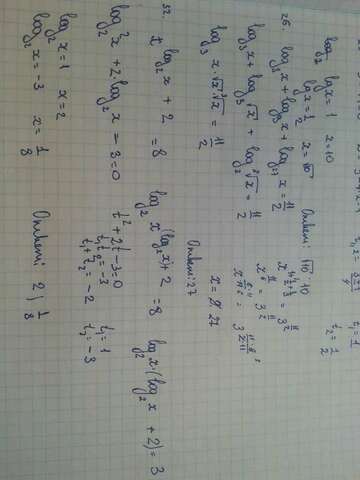 lg x = 1   x = 10
lg x = 1/2   x = √10   Ответ: √10; 10
26. log₃ x + log₉ x + log₂₇ x = 11/2
log₃ x + log₃ √x + log₃ ∛x = 11/2
log₃ x · √x · ∛x = 11/2
x^(1+1/2+1/3) = 3^(11/2)
x^(11/6) = 3^(11/2)
x = 27
Ответ: 27
32. x^(log₂ x + 2) = 8
log₂ x^(log₂ x) + 2 = 8
log₂ x · (log₂ x + 2) = 3
log₂² x + 2 log₂ x − 3 = 0
t² + 2t − 3 = 0
t₁ t₂ = −3
t₁ + t₂ = −2
t₁ = 1
t₂ = −3
log₂ x = 1   x = 2
log₂ x = −3   x = 1/8
Ответ: 2; 1/8